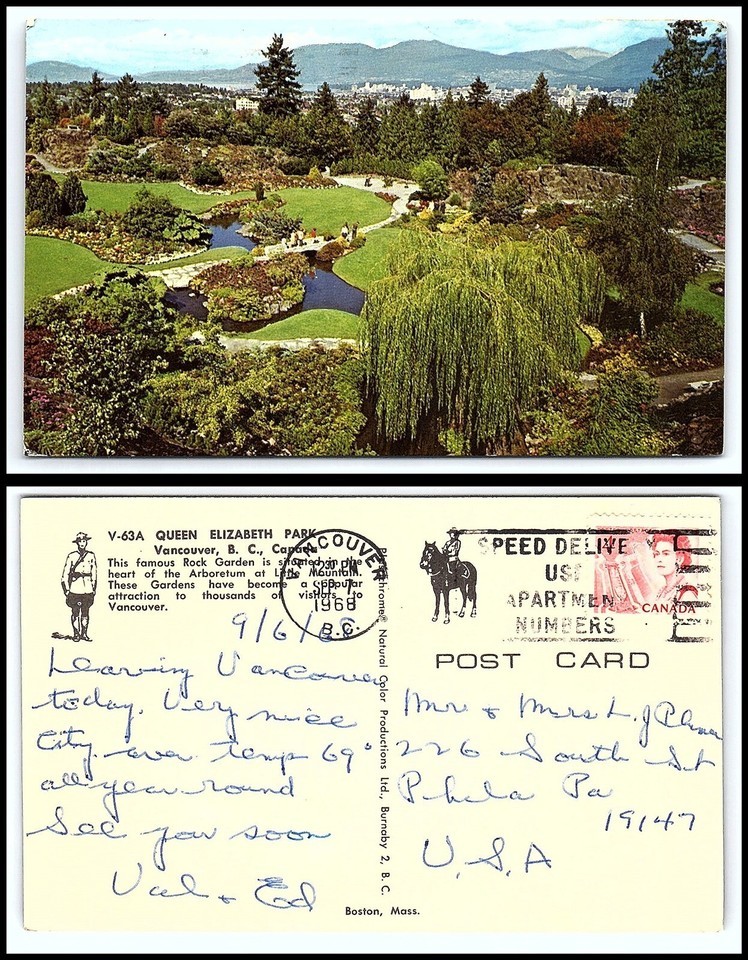 V-63A QUEEN ELIZABETH PARK
Vancouver, B. C., Canada
This famous Rock Garden is situated in the
heart of the Arboretum at Little Mountain.
These Gardens have become a popular
attraction to thousands of visitors to
Vancouver.
VANCOUVER
PM
1968
B.C.
SPEED DELIVE
USE
APARTMENT
NUMBERS
CANADA
POST CARD
9/6/68
Leaving Vancouver
today. Very nice
City. aver temp 69°
all year round
See you soon
Val & Ed
Natural Color Productions Ltd., Burnaby 2, B. C.
Mr & Mrs L. J
226 South St
Phila Pa
19147
U.S.A
Boston, Mass.